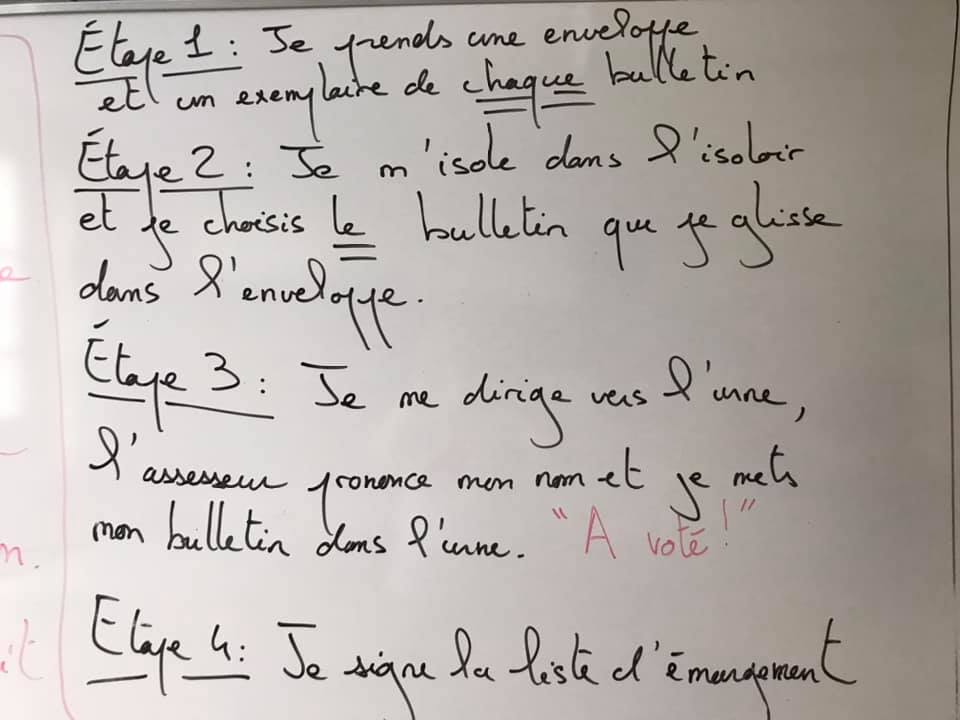 Étape 1 : Je prends une enveloppe
et un exemplaire de chaque bulletin
Étape 2 : Je m'isole dans l'isoloir
et je choisis le bulletin que je glisse
dans l'enveloppe.
Étape 3 : Je me dirige vers l'urne,
l'assesseur prononce mon nom et je mets
mon bulletin dans l'urne. "A voté !"
Etape 4 : Je signe la liste d'émargement